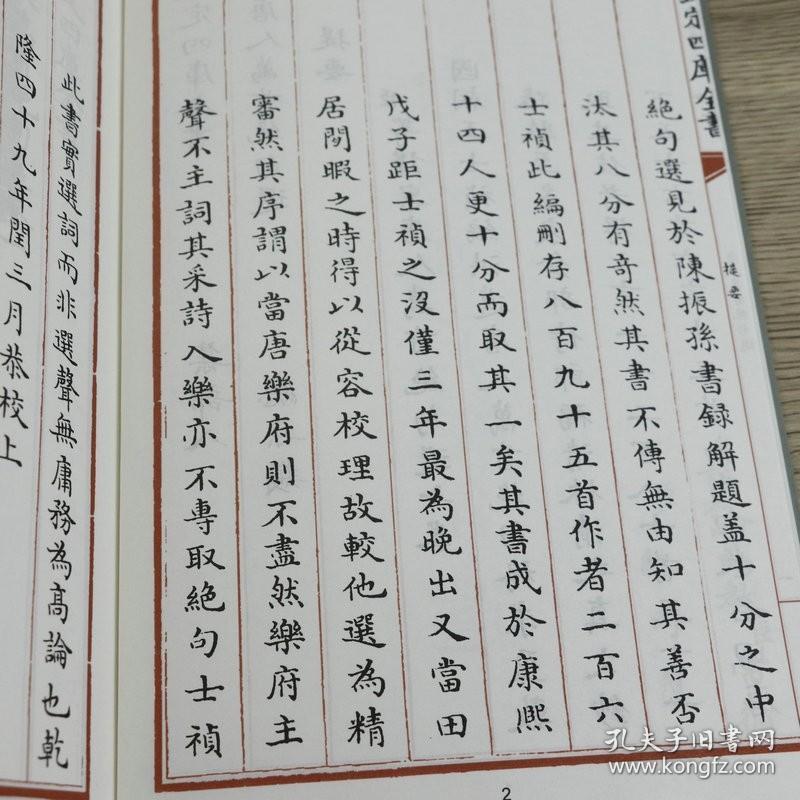 定四庫全書
提要
絶句選見於陳振孫書録解題盖十分之中
汰其八分有奇然其書不傳無由知其善否
士禎此編刪存八百九十五首作者二百六
十四人更十分而取其一矣其書成於康熙
戊子距士禎之沒僅三年最為晚出又當田
居閒暇之時得以從容校理故較他選為精
審然其序謂以當唐樂府則不盡然樂府主
聲不主詞其采詩入樂亦不專取絕句士禎
此書實選詞而非選聲無庸務為高論也乾
隆四十九年閏三月恭校上
2
孔夫子旧书网
www.kongfz.com